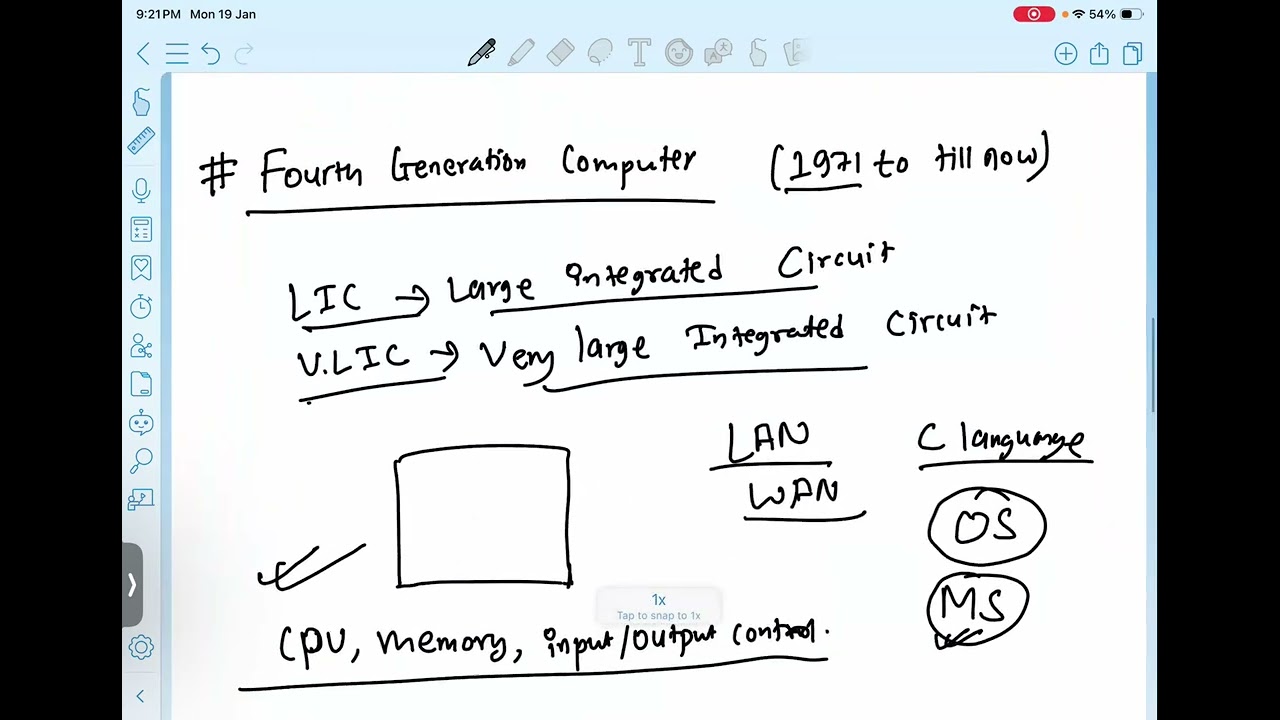 9:21PM Mon 19 Jan
54%
# Fourth Generation Computer (1971 to till now)
LIC → Large integrated Circuit
V.LIC → Very large Integrated Circuit
LAN
C language
WAN
OS
MS
1x
Tap to snap to 1x
CPU, memory, input/output control.